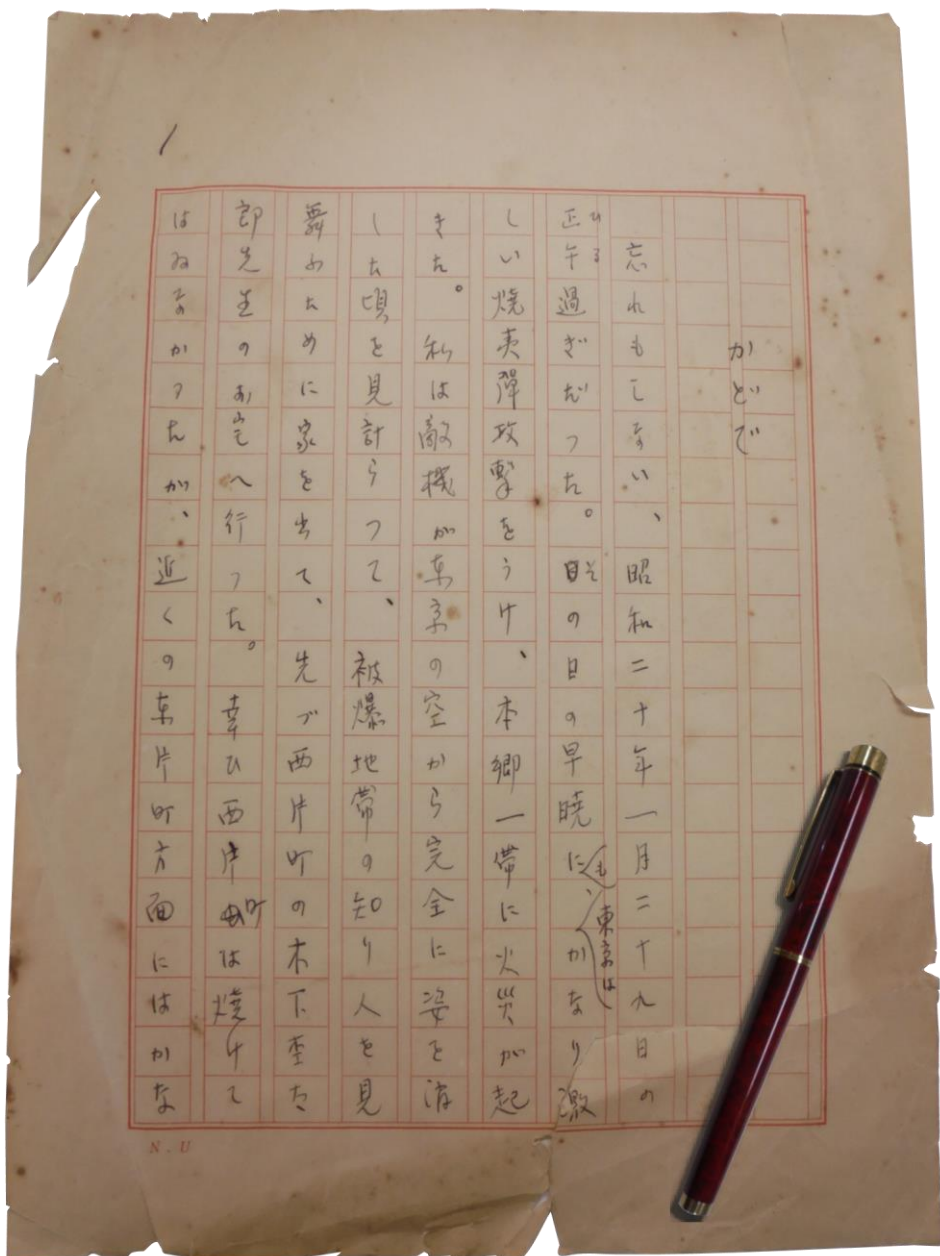 1
かどで
忘れもしない、昭和二十年一月二十九日の
ひる
正午過ぎだつた。その日の早暁にも、東京はかなり激
しい焼夷彈攻撃をうけ、本郷一帯に火災が起
きた。私は敵機が東京の空から完全に姿を消
した頃を見計らつて、被爆地帯の知り人を見
舞ふために家を出て、先づ西片町の木下杢太
郎先生のお宅へ行つた。幸ひ西片町は焼けて
はゐなかつたが、近くの東片町方面にはかな
N.U